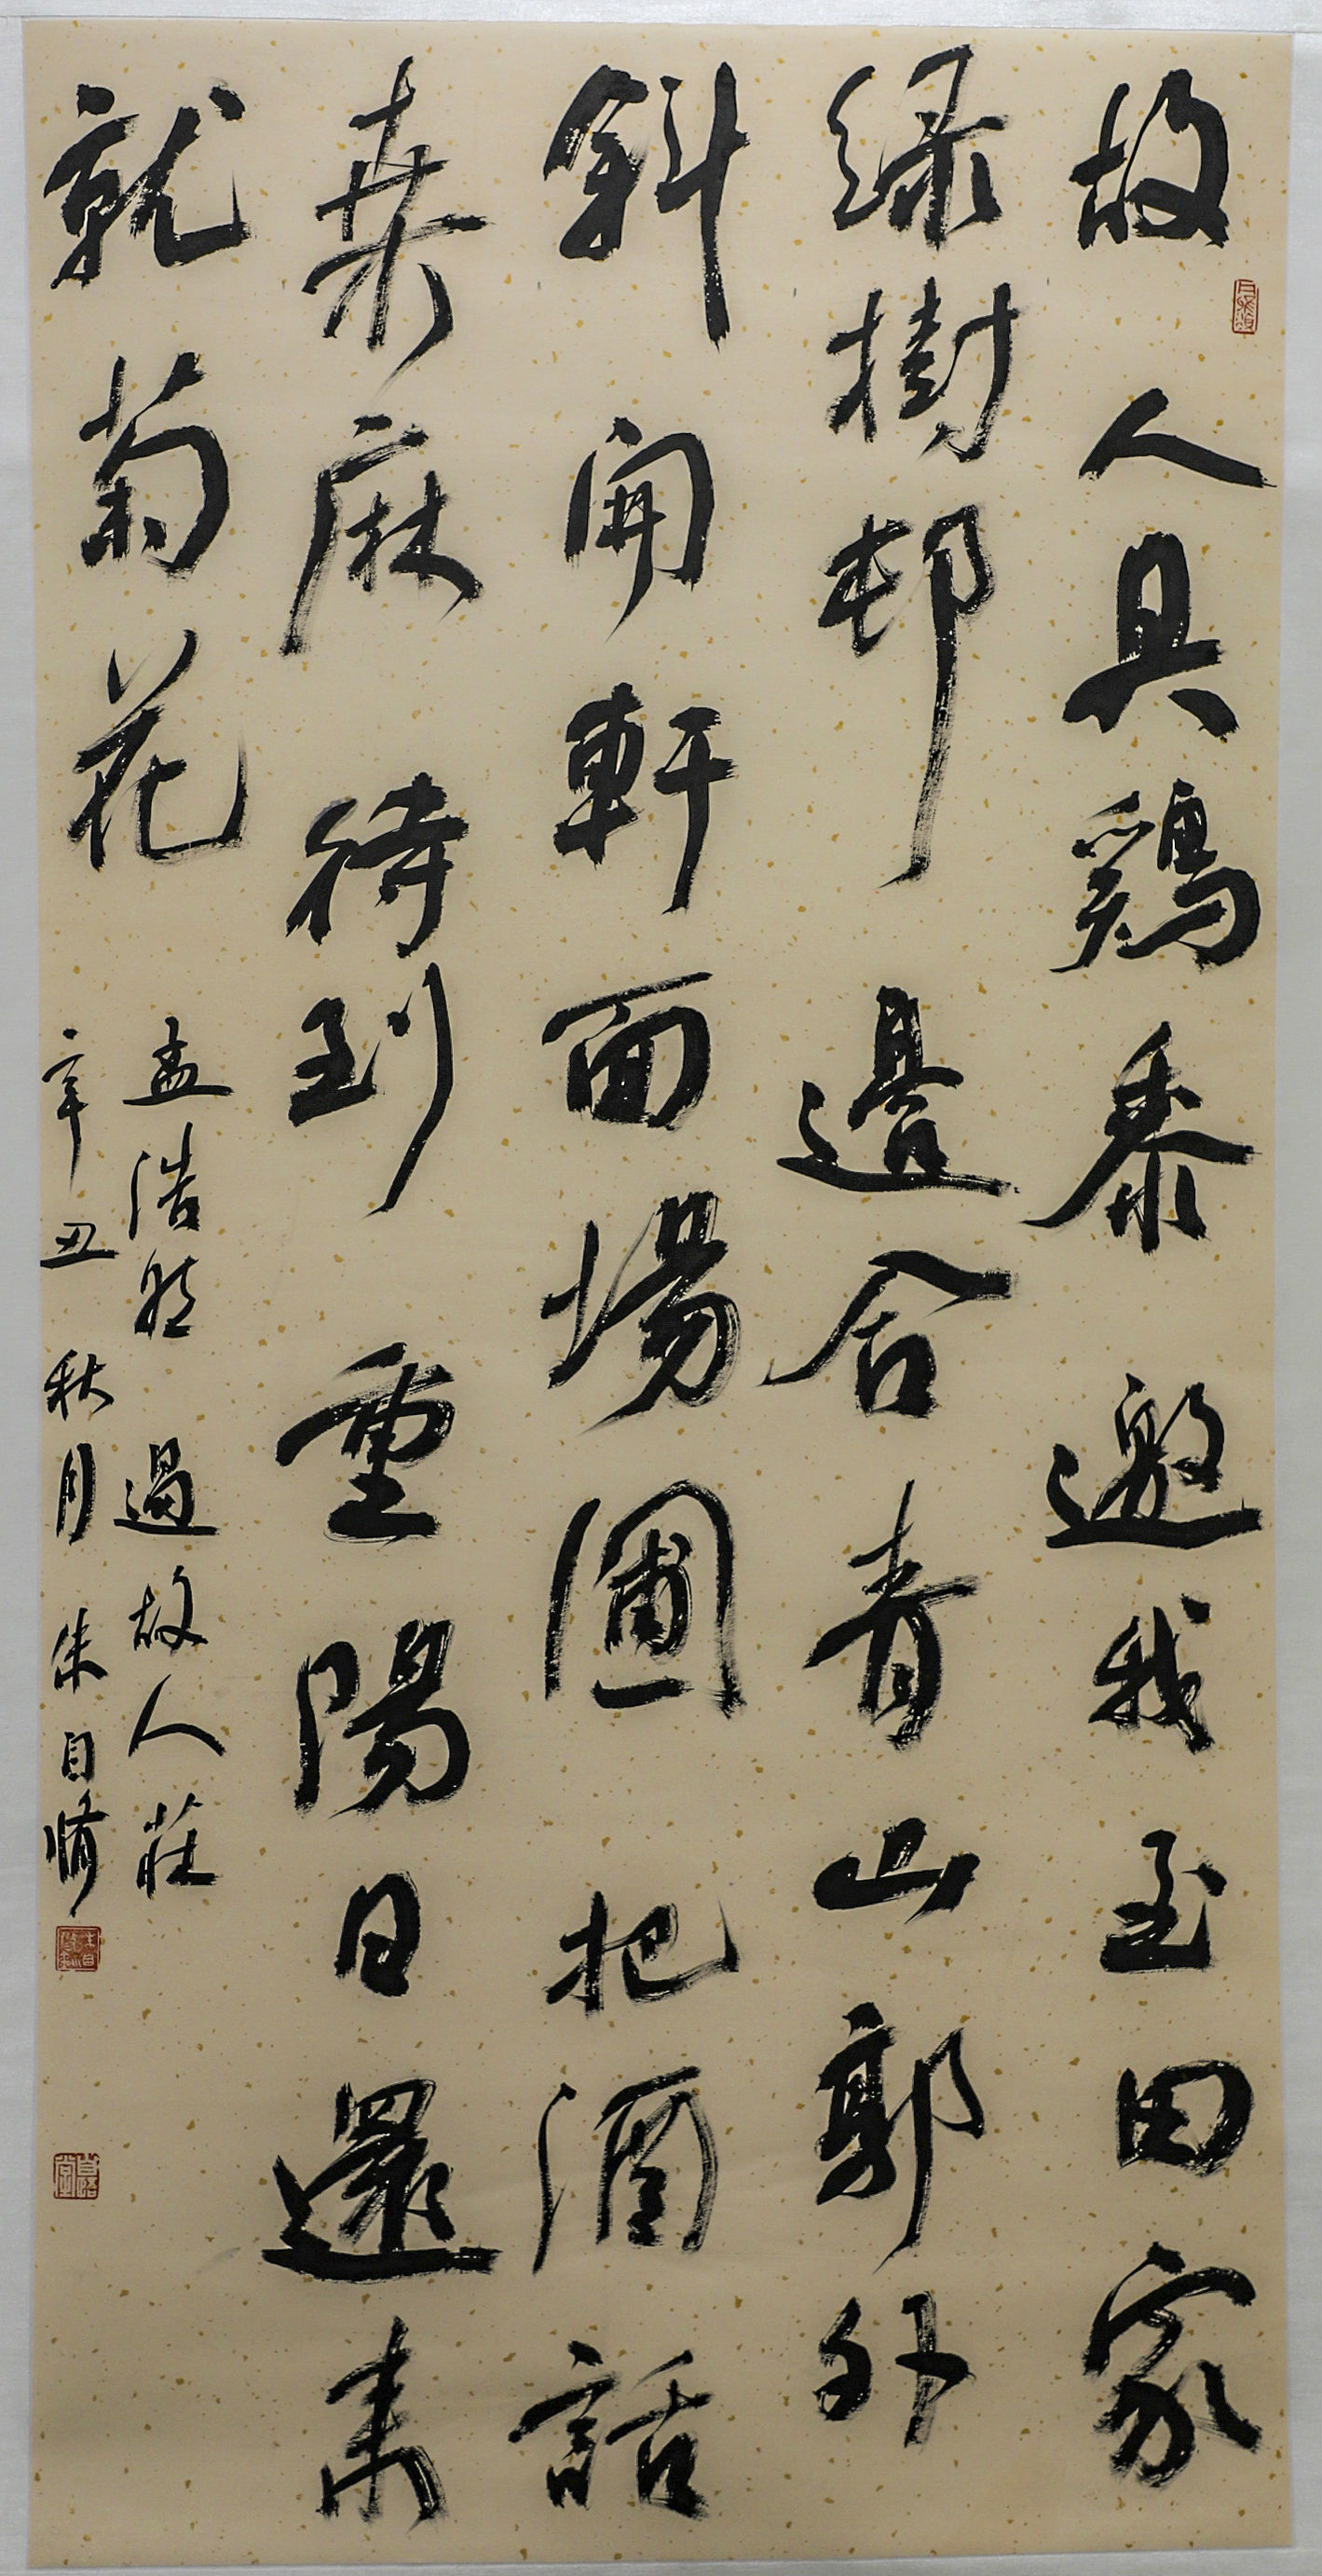 故人具鷄黍邀我至田家
緑樹邨邊合青山郭外
斜開軒面場圃把酒話
桒麻待到重陽日還来
就菊花
孟浩然過故人莊
辛丑秋月朱自脩